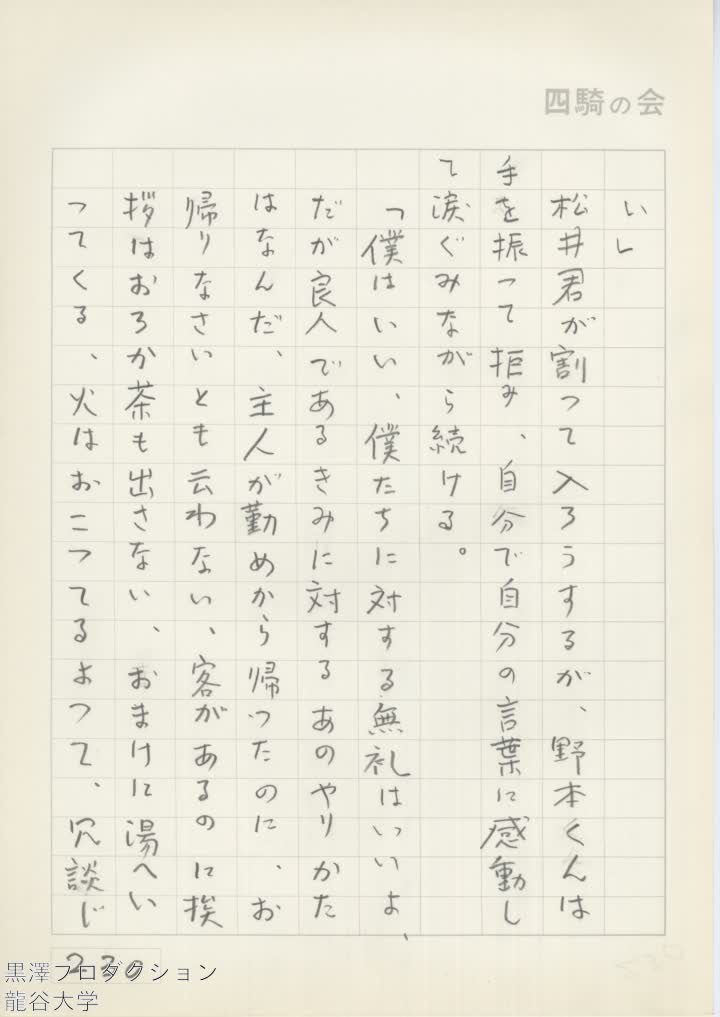 四騎の会
い」
松井君が割って入ろうするが、野本くんは
手を振って拒み、自分で自分の言葉に感動し
て涙ぐみながら続ける。
「僕はいい、僕たちに対する無礼はいいよ、
だが良人であるきみに対するあのやりかた
はなんだ、主人が勤めから帰ったのに、お
帰りなさいとも云わない、客があるのに挨
拶はおろか茶も出さない、おまけに湯へい
ってくる、火はおこってるよって、冗談じ
230
黒澤プロダクション
龍谷大学